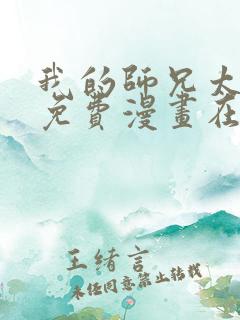 我的師兄太
免費漫畫在
王緒言
未经同意禁止转载